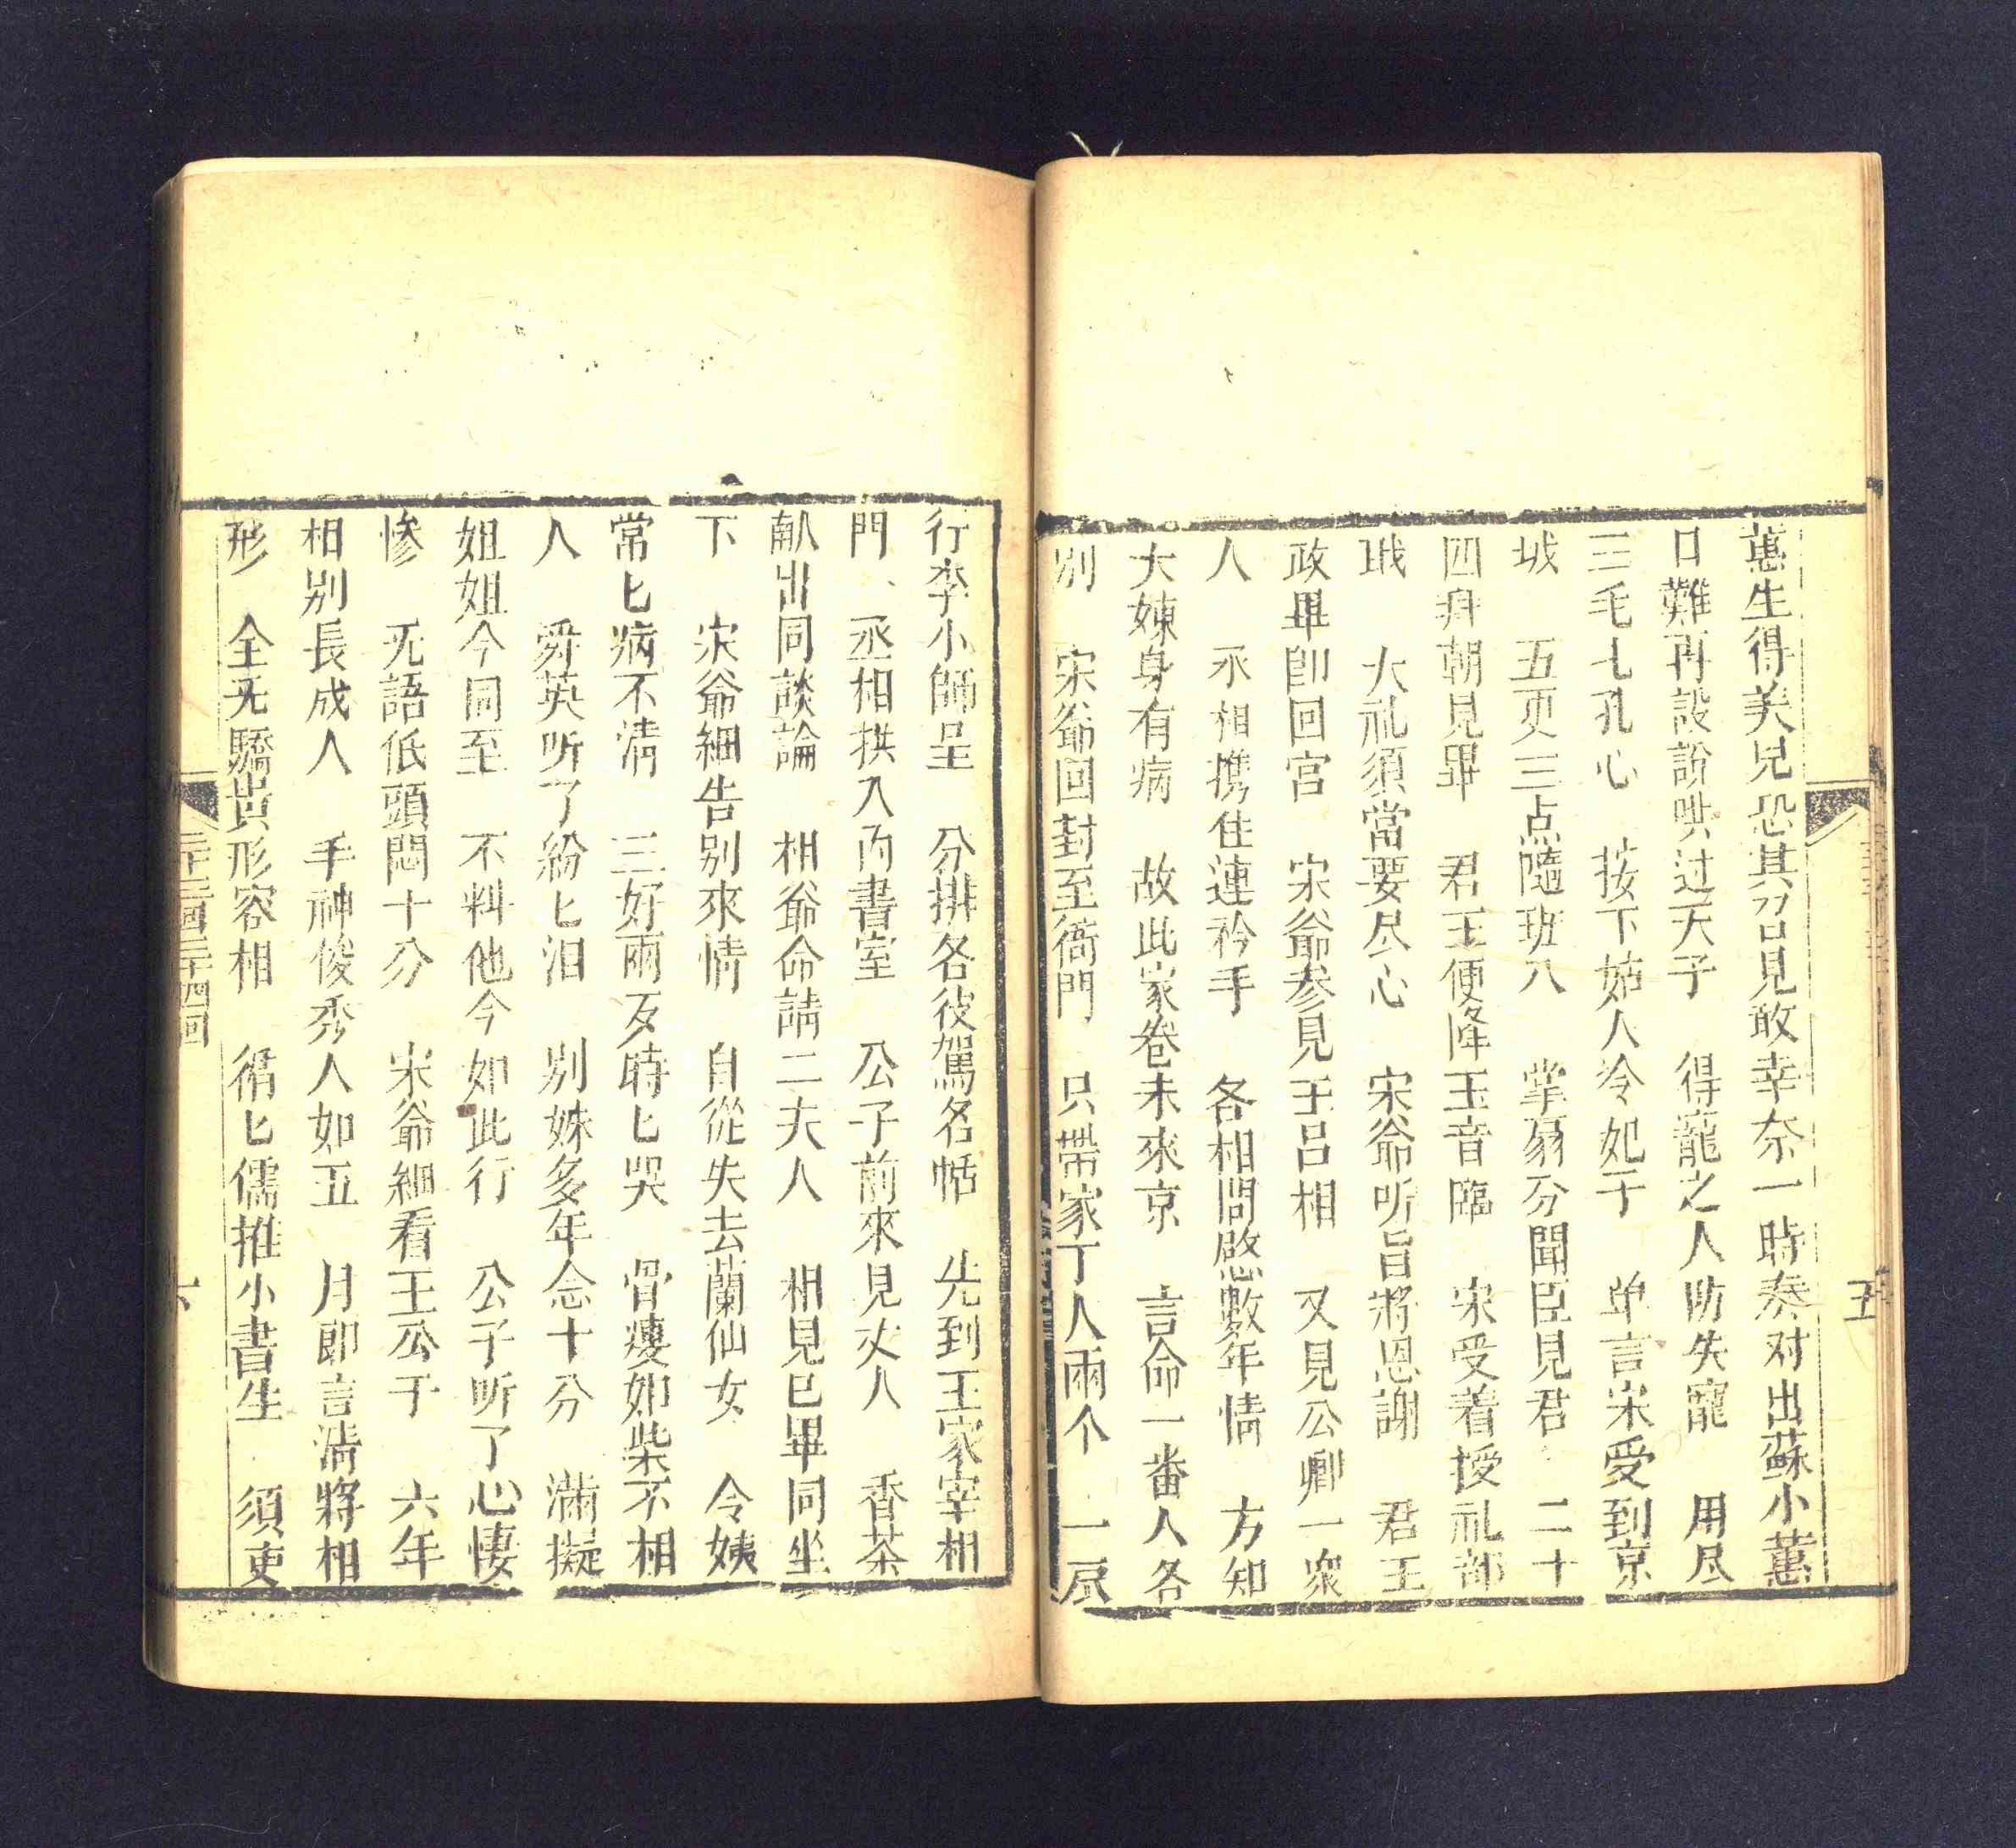 蕙生得美皃恐其召見敢幸奈一時奏对出蘇小蕙
日難再設說哄过天子 得寵之人防失寵 用尽
三毛七孔心 按下姑人冷妃子 单言宋受到京
城 五更三点隨班入 掌扇分開臣見君 二十
四拜朝見畢 君王便降玉音臨 宋受着授礼部
職 大礼須當要尽心 宋爺听旨將恩謝 君王
政畢卽回宫 宋爺参見王吕相 又見公卿一衆
人 丞相携住連衿手 各相問慇數年情 方知
大娕身有病 故此家卷未來京 言命一畨人各
別 宋爺回封至衙門 只帶家丁人兩个 一原
行李小師呈 分排各役駕名帖 先到王家宰相
門 丞相拱入内書室 公子前來見丈人 香茶
献出同談論 相爺命請二夫人 相見已畢同坐
下 宋爺細告别來情 自從失去蘭仙女 令姨
常匕病不清 三好兩歹時匕哭 骨瘦如柴不相
人 舜英听了紛匕泪 别姝多年念十分 滿擬
姐姐今同至 不料他今如此行 公子听了心悽
惨 旡語低頭悶十分 宋爺細看王公子 六年
相别長成人 手神俊秀人如玉 月郎言淸將相
形 全旡驕貴形容相 循匕儒推小書生 須吏
二十三囬二十四囬
五
六